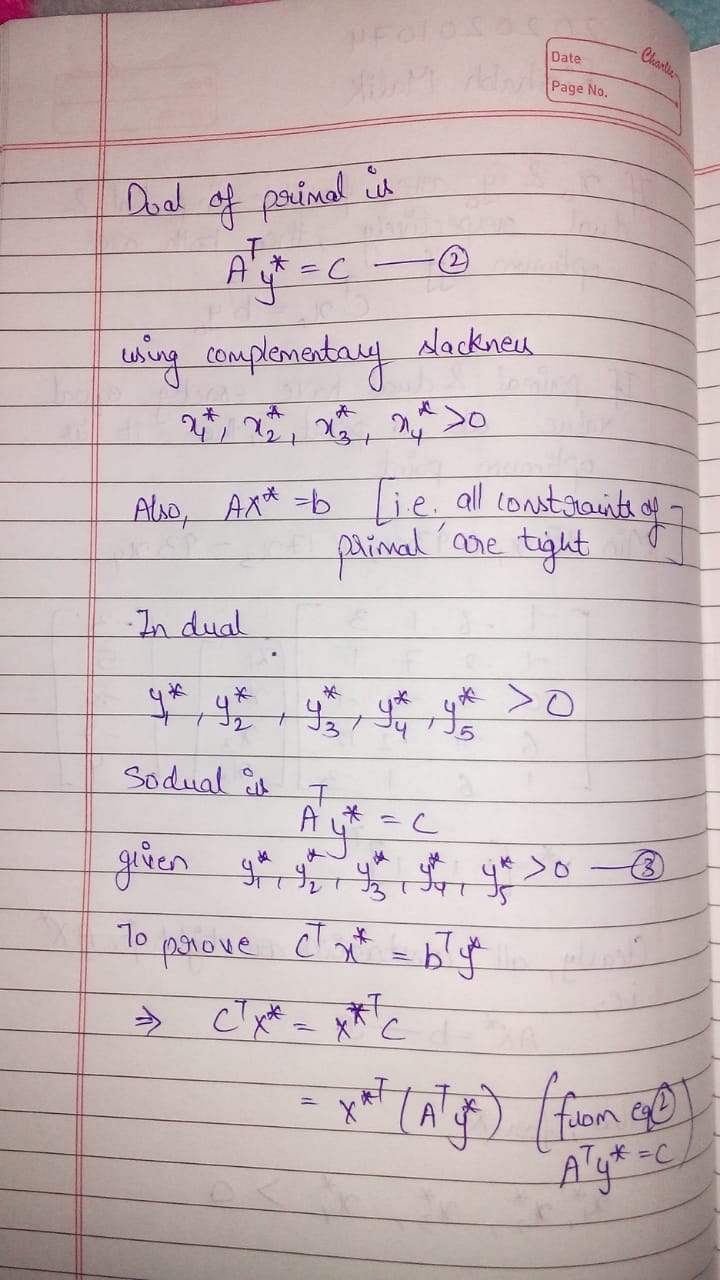 Date
Charlie
Page No.
Doal of primal is
Aᵀy* = C — ②
using complementary slackness
x₁*, x₂*, x₃*, x₄* >0
Also, AX* =b [i.e. all constraints of
primal are tight]
In dual
y₁*, y₂*, y₃*, y₄*, y₅* > 0
So dual is
Aᵀy* = C
given y₁*, y₂*, y₃*, y₄*, y₅* >0 — ③
To prove Cᵀx* = bᵀy*
⇒ Cᵀx* = x*ᵀC
= x*ᵀ(Aᵀy*) (from eq②
Aᵀy* =C)